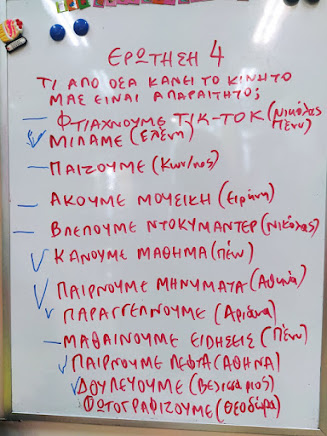 ΕΡΩΤΗΣΗ 4
ΤΙ ΑΠΟ ΟΣΑ ΚΑΝΕΙ ΤΟ ΚΙΝΗΤΟ
ΜΑΣ ΕΙΝΑΙ ΑΠΑΡΑΙΤΗΤΟ;
— ΦΤΙΑΧΝΟΥΜΕ ΤΙΚ-ΤΟΚ (Νικόλας
Πένυ)
✓ ΜΙΛΑΜΕ (Ελένη)
— ΠΑΙΖΟΥΜΕ (Κων/νος)
— ΑΚΟΥΜΕ ΜΟΥΣΙΚΗ (Ειρήνη)
— ΒΛΕΠΟΥΜΕ ΝΤΟΚΥΜΑΝΤΕΡ (Νικόλας)
✓ ΚΑΝΟΥΜΕ ΜΑΘΗΜΑ (Πένυ)
✓ ΠΑΙΡΝΟΥΜΕ ΜΗΝΥΜΑΤΑ (Αθηνά)
✓ ΠΑΡΑΓΓΕΛΝΟΥΜΕ (Αριάνα)
— ΜΑΘΑΙΝΟΥΜΕ ΕΙΔΗΣΕΙΣ (Πένυ)
✓ ΠΑΙΡΝΟΥΜΕ ΛΕΦΤΑ (ΑΘΗΝΑ)
✓ ΔΟΥΛΕΥΟΥΜΕ (Βελισάριος)
ΦΩΤΟΓΡΑΦΙΖΟΥΜΕ (Θεοδώρα)